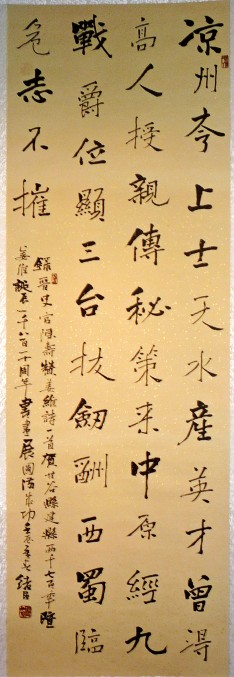 凉州夸上士天水産英才曾得
高人授親傳秘策来中原經九
戰爵位顯三台拔劒酬西蜀臨
危志不摧
錄晋史官陳壽贊姜維詩一首賀甘谷縣建縣兩千七百年暨
姜維誕辰一千八百一十周年書畫展圓滿成功壬辰年